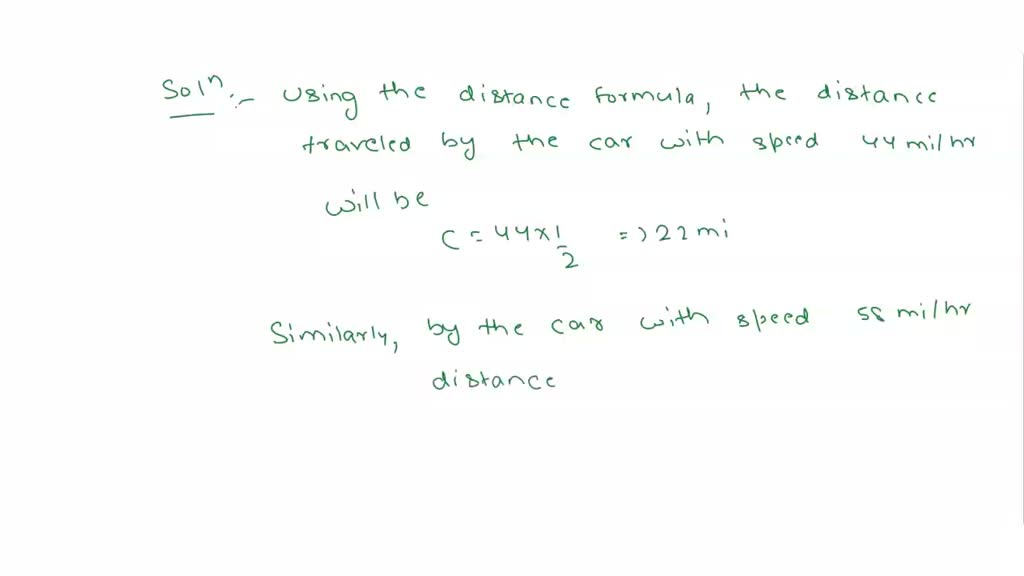 Solⁿ :- Using the distance formula, the distance
traveled by the car with speed 44 mi/hr
will be
C = 44 × 1/2 => 22 mi
Similarly, by the car with speed 58 mi/hr
distance